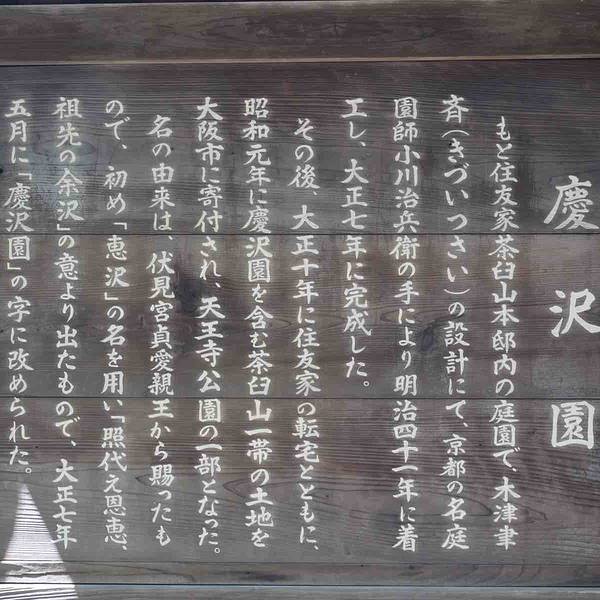 慶沢園
もと住友家茶臼山本邸内の庭園で、木津聿
斉(きづいつさい)の設計にて、京都の名庭
園師小川治兵衛の手により明治四十一年に着
工し、大正七年に完成した。
その後 大正十年に住友家の転宅とともに、
昭和元年に慶沢園を含む茶臼山一帯の土地を
大阪市に寄付され、天王寺公園の一部となった。
名の由来は、伏見宮貞愛親王から賜ったも
ので、初め「恵沢」の名を用い「照代え恩恵、
祖先の余沢」の意より出たもので、大正七年
五月に「慶沢園」の字に改められた。